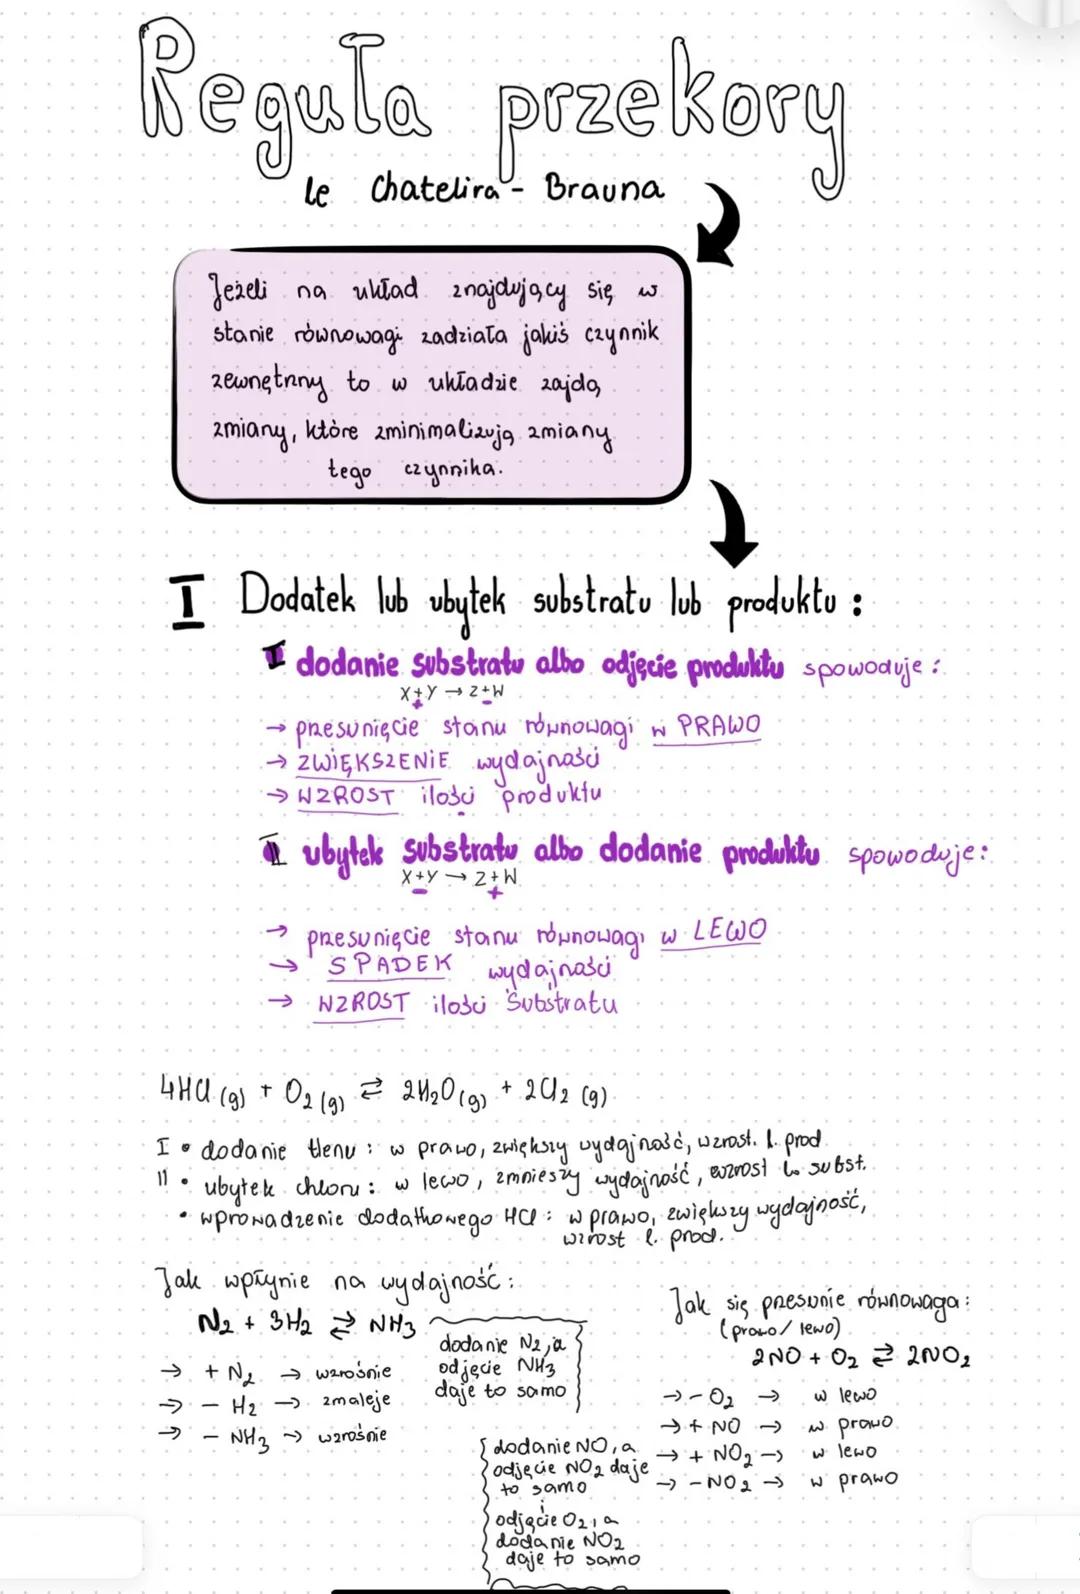 Reguła przekory
le Chatelira - Brauna
Jeżeli na układ znajdujący się w
stanie równowagi zadziała jakiś czynnik
zewnętrzny to w układzie zajdą
zmiany, które zminimalizują zmiany
tego czynnika.
I Dodatek lub ubytek substratu lub produktu :
I dodanie substratu albo odjęcie produktu spowoduje :
X+Y → Z+W
+ -
→ przesunięcie stanu równowagi w PRAWO
→ ZWIĘKSZENIE wydajności
→ WZROST ilości produktu
II ubytek substratu albo dodanie produktu spowoduje :
X+Y → Z+W
- +
→ przesunięcie stanu równowagi w LEWO
→ SPADEK wydajności
→ WZROST ilości Substratu
4HCl (g) + O2 (g) ⇄ 2H2O (g) + 2Cl2 (g)
I • dodanie tlenu : w prawo, zwiększy wydajność, wzrost. l. prod
II • ubytek chloru : w lewo, zmnieszy wydajność, wzrost l. subst.
• wprowadzenie dodatkowego HCl : w prawo, zwiększy wydajność,
wzrost l. prod.
Jak wpłynie na wydajność :
N2 + 3H2 ⇄ NH3
→ + N2 → wzrośnie
→ - H2 → zmaleje
→ - NH3 → wzrośnie
dodanie N2, a
odjęcie NH3
daje to samo
Jak się przesunie równowaga :
(prawo/ lewo)
2NO + O2 ⇄ 2NO2
→ - O2 → w lewo
→ + NO → w prawo
→ + NO2 → w lewo
→ - NO2 → w prawo
dodanie NO, a
odjęcie NO2 daje
to samo
i
odjęcie O2, a
dodanie NO2
daje to samo